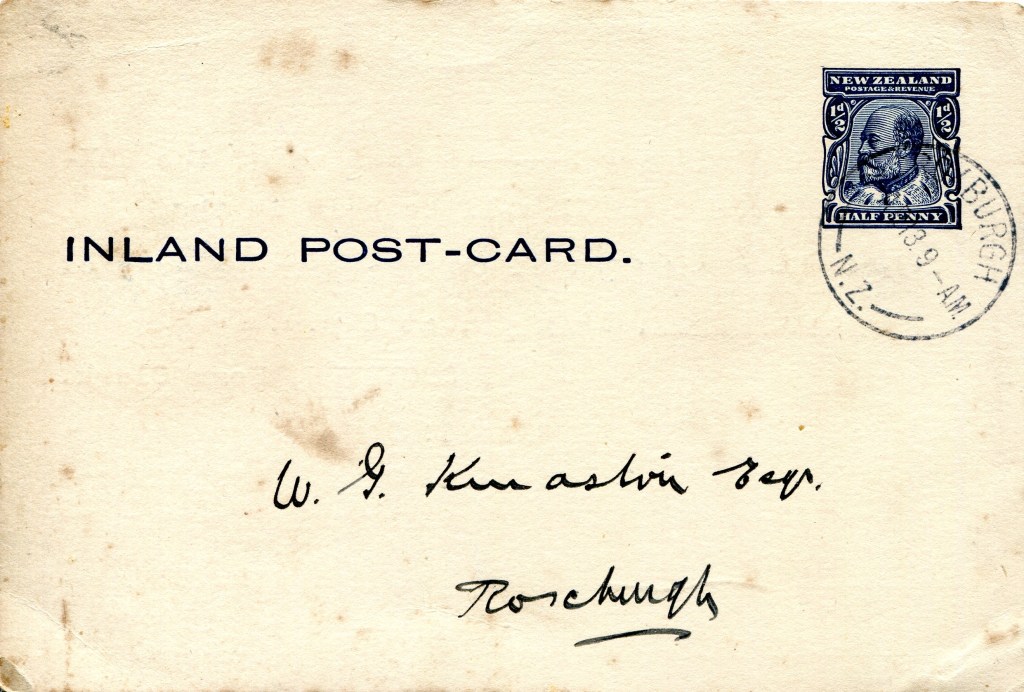 NEW ZEALAND
POSTAGE & REVENUE
½d ½d
HALF PENNY
BURGH
13.9-AM
N.Z.
INLAND POST-CARD.
W. G. Esqr.
Roxburgh